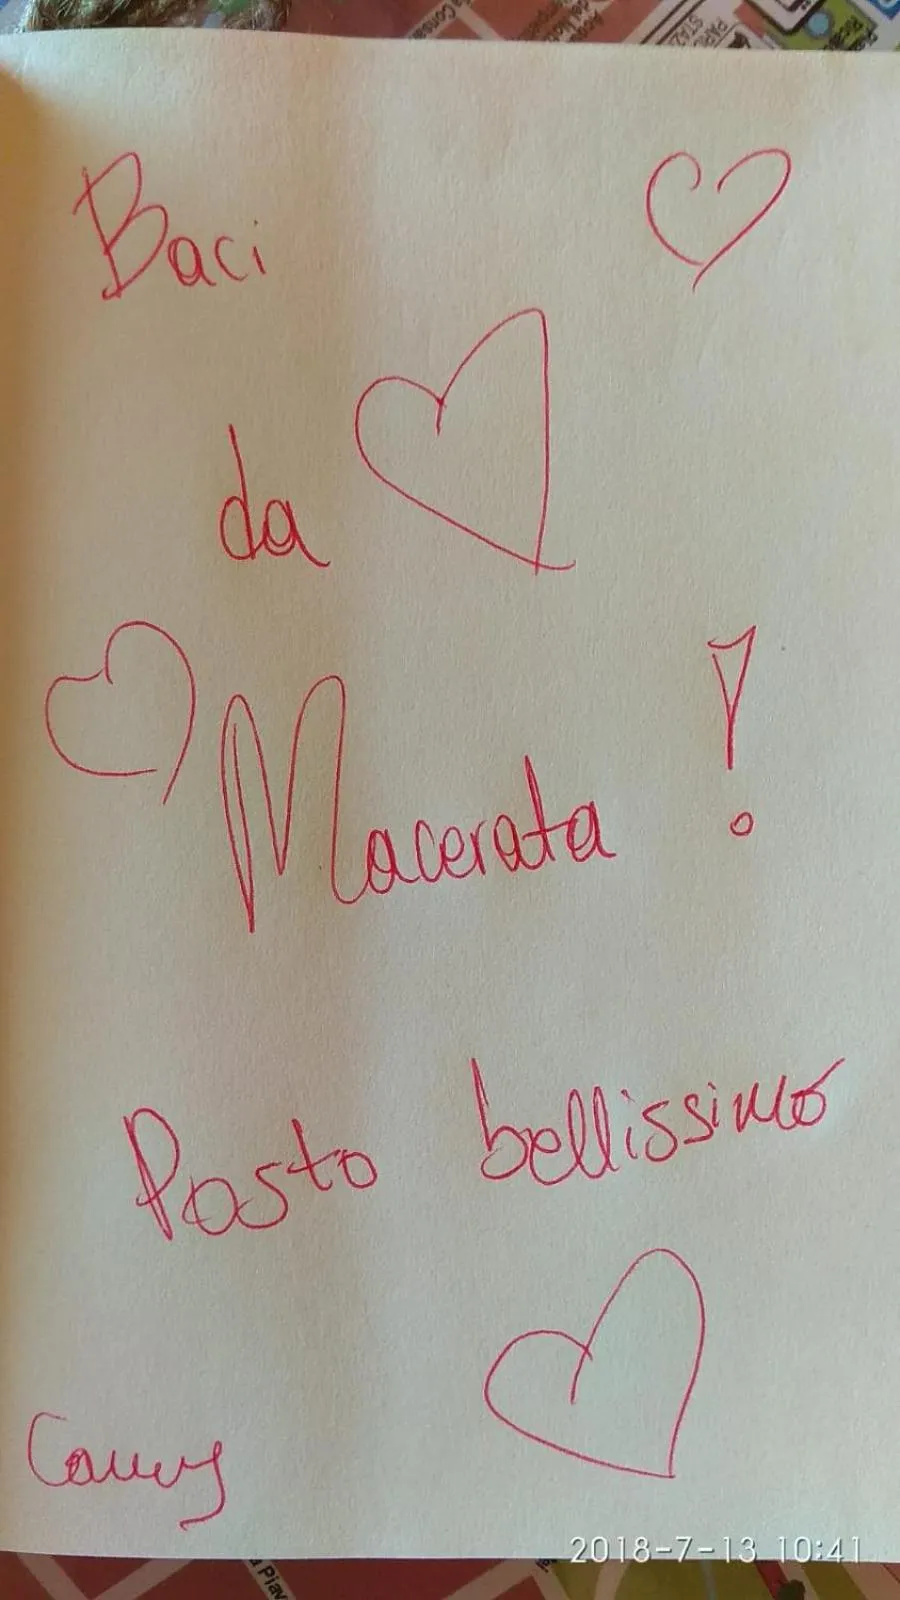 Baci
da
Macerata!
Posto bellissimo
2018-7-13 10:41